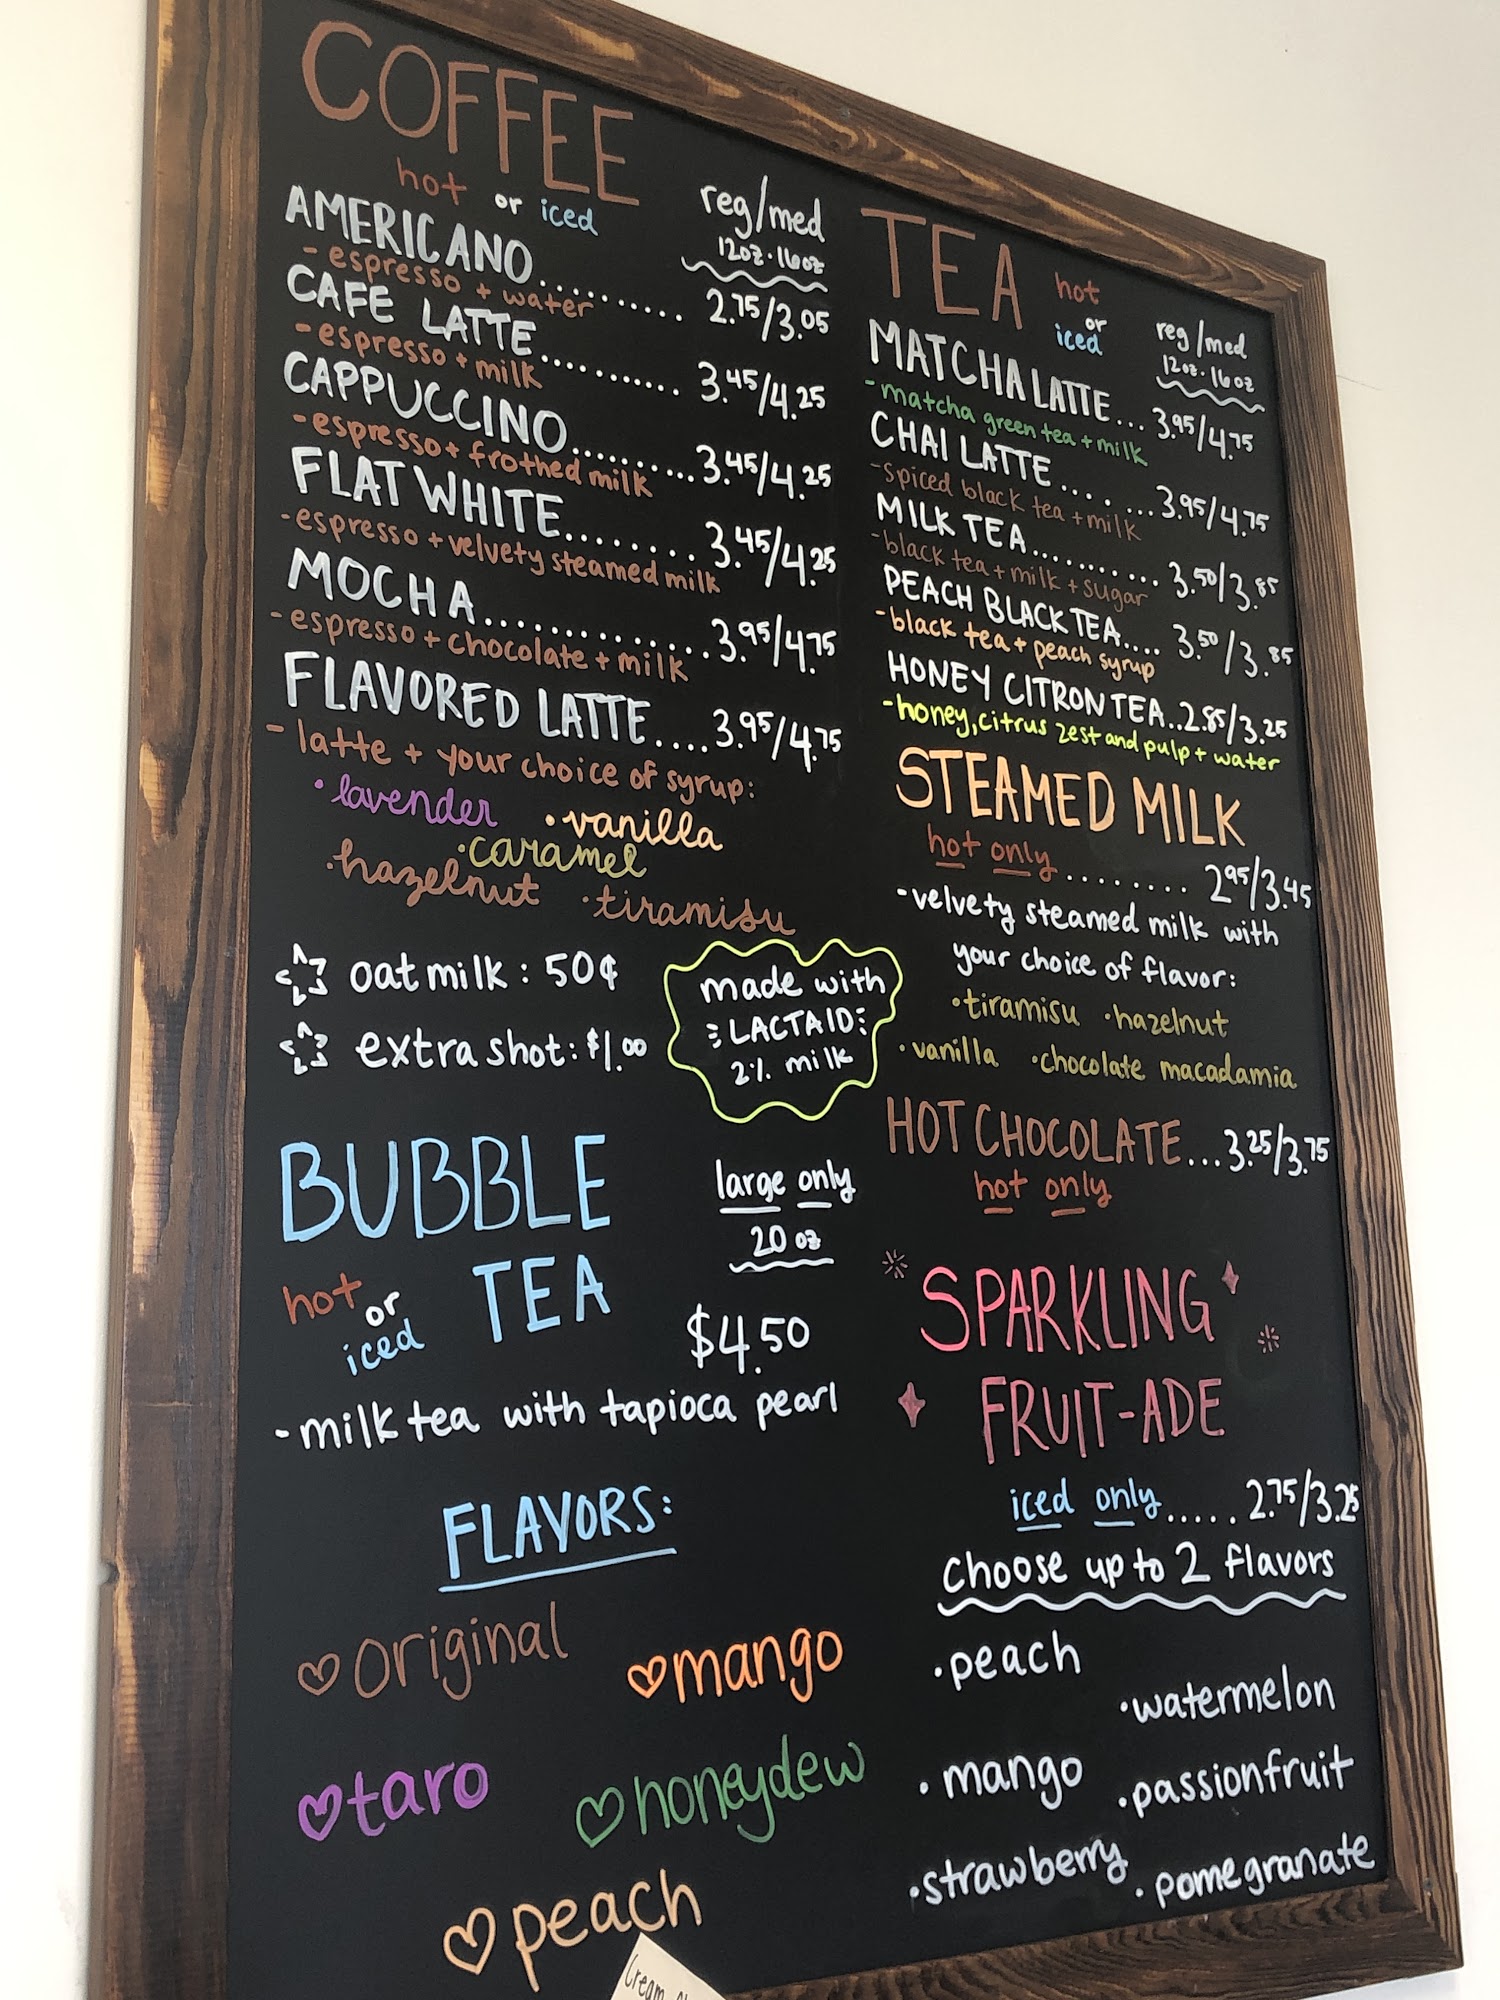 COFFEE
hot or iced
reg/med
12oz · 16oz
AMERICANO.......... 2.75/3.05
- espresso + water
CAFE LATTE........... 3.45/4.25
- espresso + milk
CAPPUCCINO..........3.45/4.25
- espresso + frothed milk
FLAT WHITE........ 3.45/4.25
- espresso + velvety steamed milk
MOCHA.............3.95/4.75
- espresso + chocolate + milk
FLAVORED LATTE....3.95/4.75
- latte + your choice of syrup:
• lavender • vanilla
• caramel
• hazelnut • tiramisu
oat milk: 50¢
extra shot: $1.00
made with
LACTAID
2% milk
BUBBLE
TEA
hot or
iced
large only
20 oz
$4.50
- milk tea with tapioca pearl
FLAVORS:
original
mango
taro
honeydew
peach
Cream
TEA
hot
or
iced
reg/med
12oz · 16oz
MATCHA LATTE... 3.95/4.75
- matcha green tea + milk
CHAI LATTE.... ...3.95/4.75
- spiced black tea + milk
MILK TEA........... 3.50/3.85
- black tea + milk + sugar
PEACH BLACK TEA.... 3.50/3.85
- black tea + peach syrup
HONEY CITRON TEA..2.85/3.25
- honey, citrus zest and pulp + water
STEAMED MILK
hot only........ 2.95/3.45
- velvety steamed milk with
your choice of flavor:
• tiramisu • hazelnut
• vanilla • chocolate macadamia
HOT CHOCOLATE...3.25/3.75
hot only
SPARKLING
FRUIT-ADE
iced only..... 2.75/3.25
choose up to 2 flavors
• peach
• watermelon
• mango
• passionfruit
• strawberry
• pomegranate